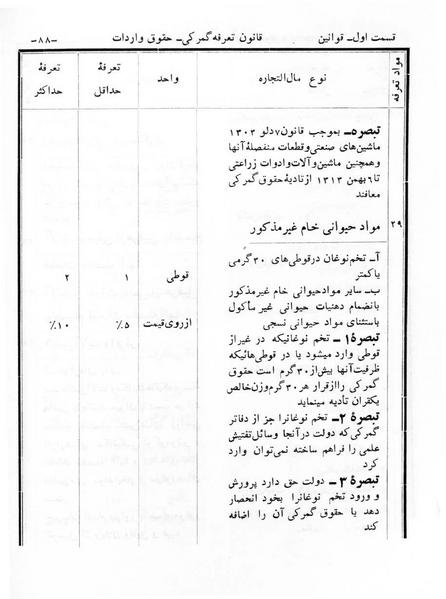 قسمت اول_ قوانین
قانون تعرفه گمرکی_ حقوق واردات
-۸۸-
مواد تعرفه
نوع مال‌التجاره
واحد
تعرفهٔ حداقل
تعرفهٔ حداکثر
تبصره_ بموجب قانون ۷ دلو ۱۳۰۳
ماشین‌های صنعتی و قطعات منفصلهٔ آنها
و همچنین ماشین و آلات و ادوات زراعتی
تا ۶ بهمن ۱۳۱۳ از تادیهٔ حقوق گمرکی
معافند
۲۹ مواد حیوانی خام غیر مذکور
آ_ تخم نوغان در قوطی‌های ۳۰ گرمی
یا کمتر قوطی ۱ ۲
ب_ سایر مواد حیوانی خام غیر مذکور
بانضمام دهنیات حیوانی غیر مأکول
باستثنای مواد حیوانی نسجی ازروی قیمت ۵٪ ۱۰٪
تبصرهٔ ۱_ تخم نوغانیکه در غیر از
قوطی وارد میشود یا در قوطی هائیکه
ظرفیت آنها بیش از ۳۰ گرم است حقوق
گمرکی را از قرار هر ۳۰ گرم وزن خالص
یکقران تأدیه مینماید
تبصرهٔ ۲_ تخم نوغانرا جز از دفاتر
گمرکی که دولت در آنجا وسائل تفتیش
علمی را فراهم ساخته نمی‌توان وارد
کرد
تبصرهٔ ۳_ دولت حق دارد پرورش
و ورود تخم نوغانرا بخود انحصار
دهد یا حقوق گمرکی آن را اضافه
کند